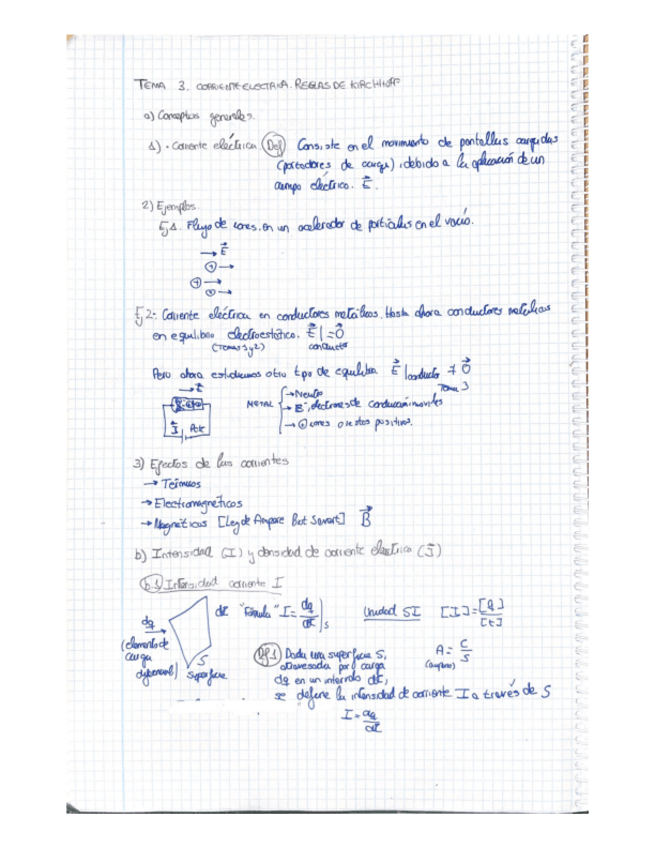 TEMA 3. CORRIENTE ELECTRICA. REGLAS DE KIRCHHOFF
a) Conceptos generales.
1) · Corriente eléctrica (Def) Consiste en el movimiento de partellas cargadas
(portadores de carga), debido a la aplicación de un
campo eléctrico. E⃗.
2) Ejemplos.
Ej 1. Flujo de iones, en un acelerador de partículas en el vacío.
→ E⃗
⊕ →
⊕ →
⊕ →
Ej 2: Corriente eléctrica en conductores metálicos. Hasta ahora conductores metálicos
en equilibrio electroestático. E⃗| = 0⃗
(Temas 1 y 2) conductor
Pero ahora estudiamos otro tipo de equilibrio E⃗|conductor ≠ 0⃗
Tema 3
→ E
I
METAL
→ Neutro
→ E⁻, electrones de conducción móviles
→ ⊕ iones o restos positivos.
3) Efectos de las corrientes
→ Térmicos
→ Electromagnéticos
→ Magnéticos [Ley de Ampere Biot Savart] B⃗
b) Intensidad (I) y densidad de corriente electrica (J⃗)
b.1) Intensidad corriente I
dq
(elemento de
carga
diferencial)
S
superficie
dt "Fórmula" I = dq/dt )S
Unidad SI [I] = [Q]/[t]
A = C/S
(amperio)
(Df 1) Dada una superficie S,
atravesada por carga
dq en un intervalo dt,
se define la intensidad de corriente I a través de S
I = dq/dt